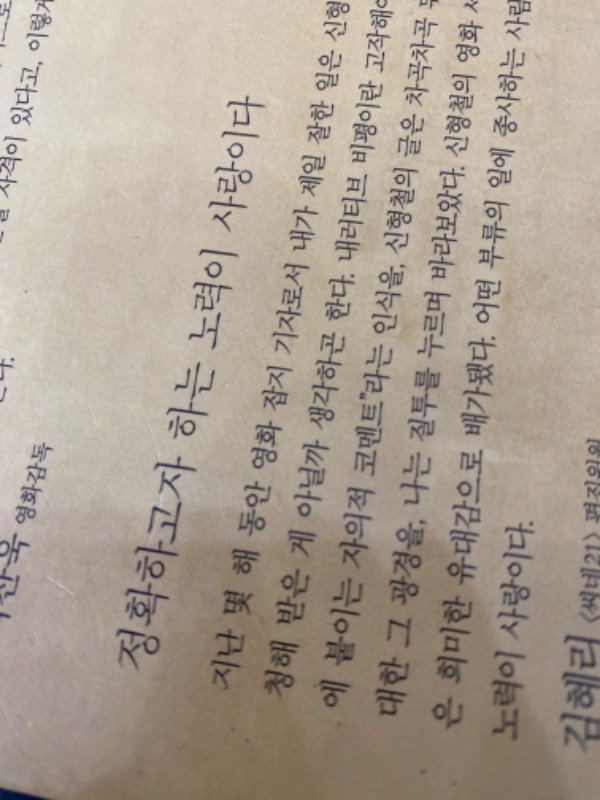 자격이 있다고, 이렇게
찬욱 영화감독
정확하고자 하는 노력이 사랑이다
지난 몇 해 동안 영화 잡지 기자로서 내가 제일 잘한 일은 신형
청해 받은 게 아닐까 생각하곤 한다. 내러티브 비평이란 고작해야
에 붙이는 자의적 코멘트"라는 인식을, 신형철의 글은 차곡차곡
대한 그 광경을, 나는 질투를 누르며 바라보았다. 신형철의 영화
은 희미한 유대감으로 배가됐다. 어떤 부류의 일에 종사하는 사람
노력이 사랑이다.
김혜리 〈씨네21〉 편집위원